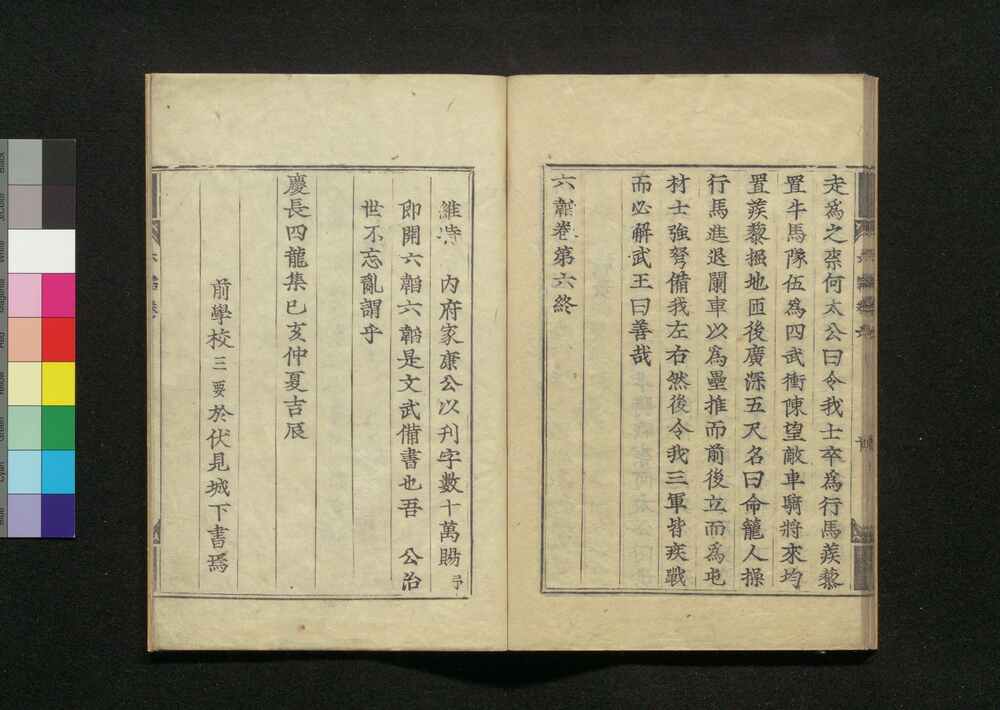 走爲之柰何太公曰令我士卒爲行馬蒺藜
置牛馬隊伍爲四武衝陳望敵車騎將來均
置蒺藜掘地匝後廣深五尺名曰命籠人操
行馬進退闌車以爲壘推而前後立而爲屯
材士強弩備我左右然後令我三軍皆疾戰
而必解武王曰善哉
六韜卷第六終
維時 内府家康公以刋字數十萬賜予
即開六韜六韜是文武備書也吾 公治
世不忘亂謂乎
慶長四龍集已亥仲夏吉辰
前學校三要於伏見城下書焉